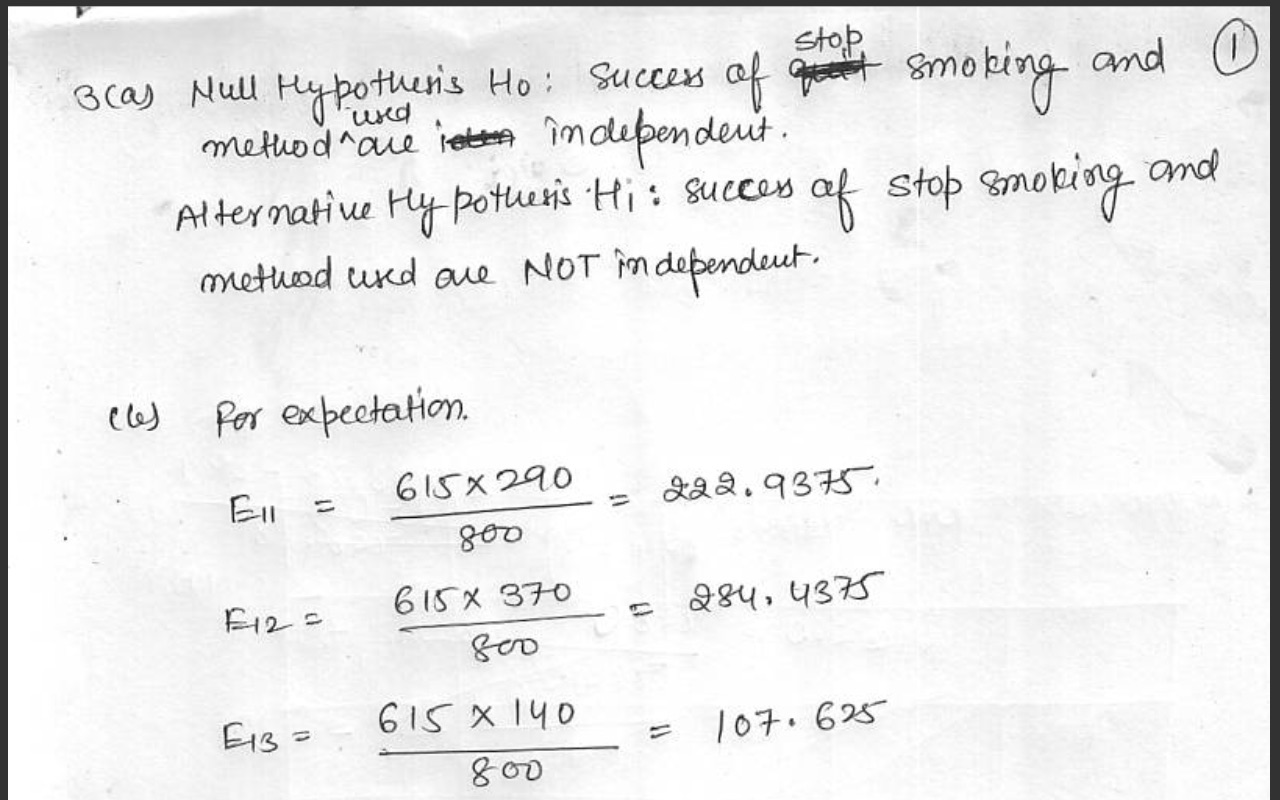 stop
3(a) Null Hypothesis H0: Success of smoking and 1
used
method ^ are independent.
Alternative Hypothesis H1: succes of stop smoking and
method used are NOT independent.
(b) For expectation.
E11 = 615 x 290 / 800 = 222.9375.
E12 = 615 x 370 / 800 = 284.4375
E13 = 615 x 140 / 800 = 107.625